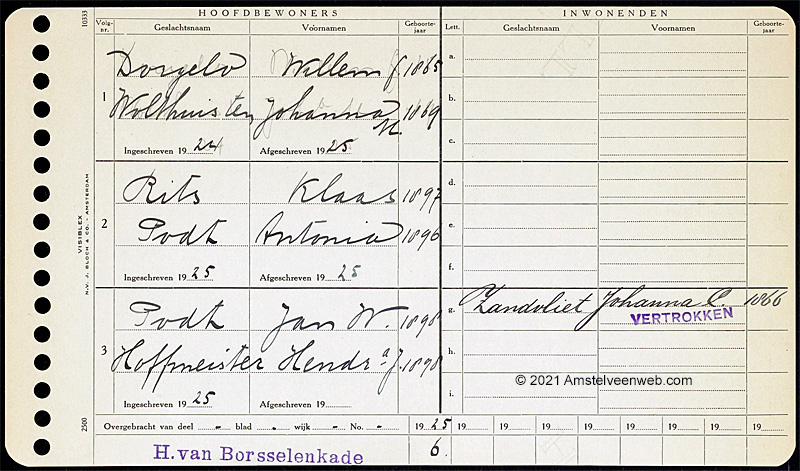 HOOFDBEWONERS
INWONENDEN
Volg-nr. Geslachtsnaam Voornamen Geboorte-jaar Lett. Geslachtsnaam Voornamen Geboorte-jaar
10333
1
Dorgelo Willem J. 1865
Wolthuisten Johanna M. 1869
Ingeschreven 1924 Afgeschreven 1925
a.
b.
c.
2
Rits Klaas 1897
Podt Antonia 1896
Ingeschreven 1925 Afgeschreven 1925
d.
e.
f.
3
Podt Jan W. 1898
Hoffmeister Hendr a J. 1898
Ingeschreven 1925 Afgeschreven 19
g. Zandvliet Johanna C. 1866
VERTROKKEN
h.
i.
© 2021 Amstelveenweb.com
VISIBLEX
N.V. J. BLOCH & CO. - AMSTERDAM
2500
Overgebracht van deel - blad - wijk - No. - 1925 19 19 19 19 19 19 19 19
H. van Borsselenkade 6.